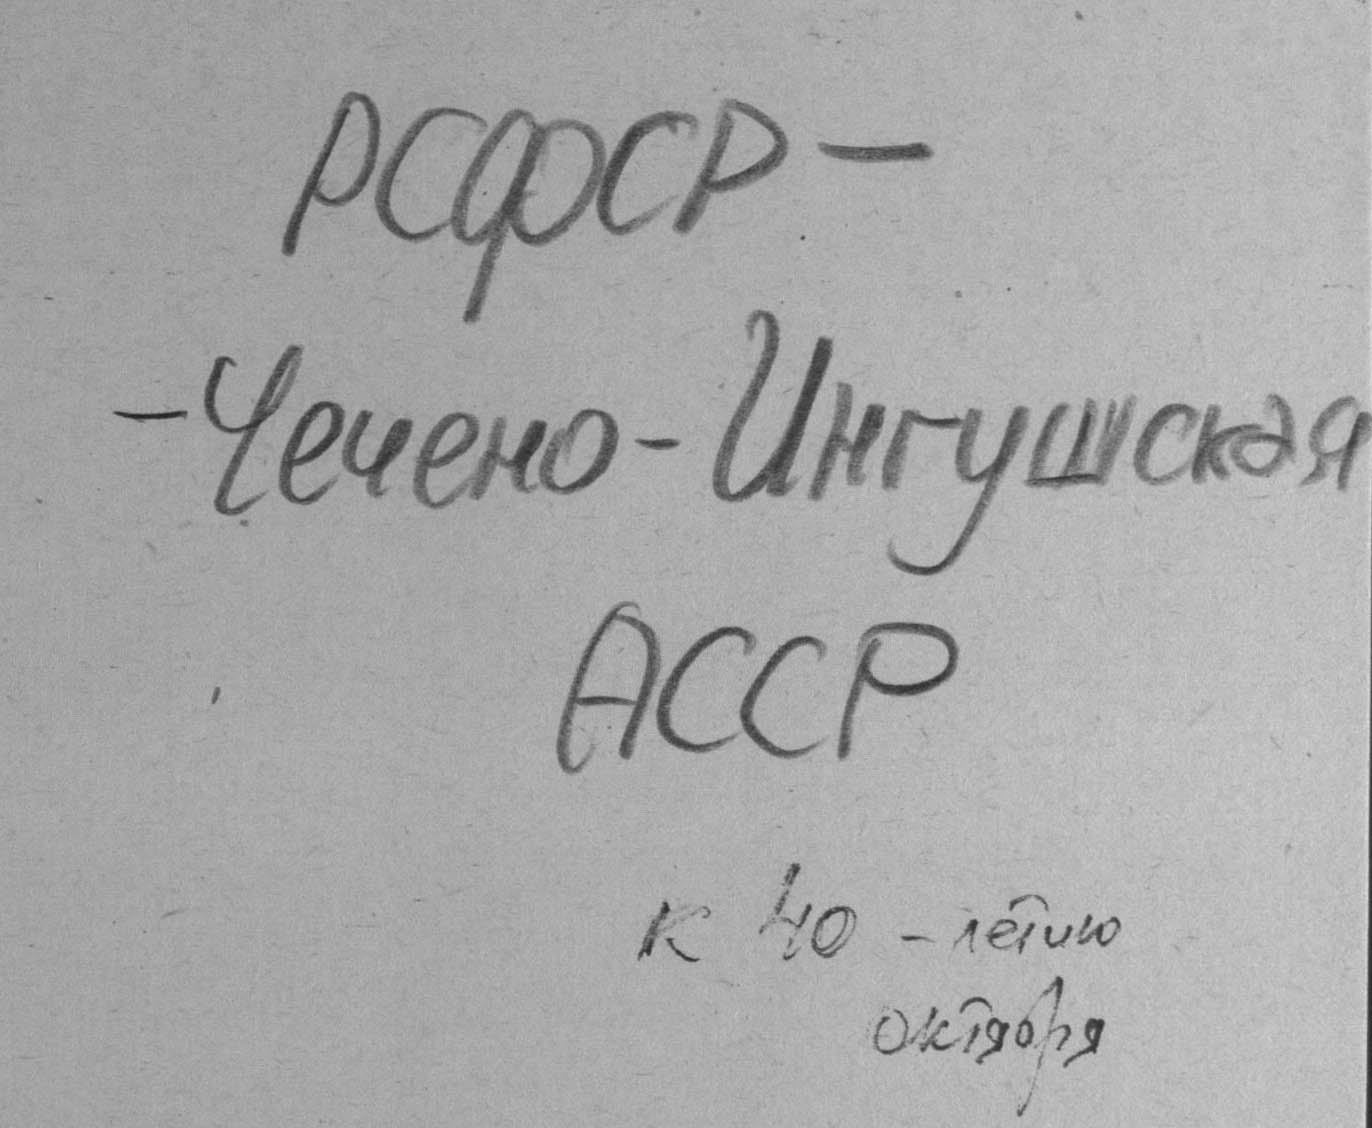 РСФСР –
– Чечено-Ингушская
АССР
к 40 - летию
октября